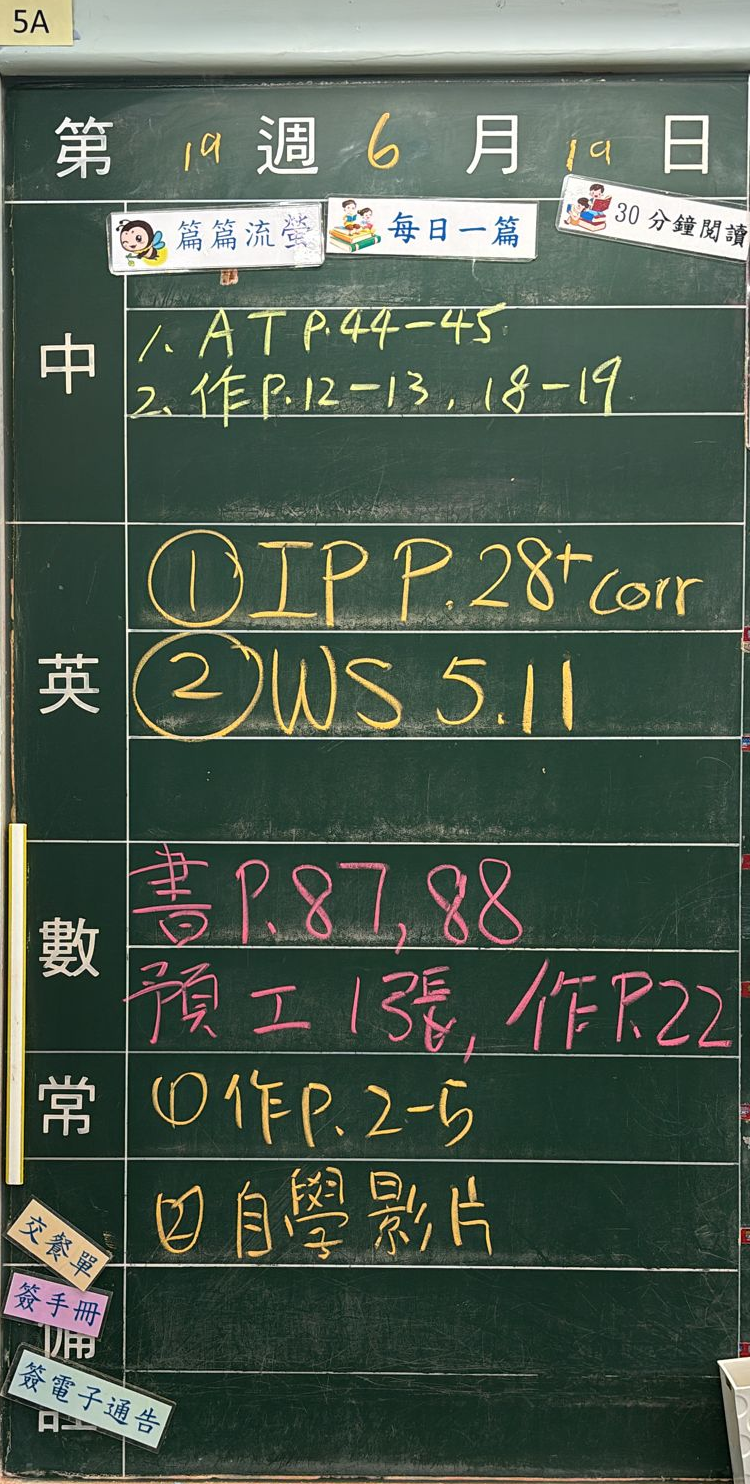 5A
第 19 週 6 月 19 日
篇篇流螢 每日一篇 30分鐘閱讀
中
1. AT P.44-45
2. 作P.12-13, 18-19
英
① IP P.28+corr
② WS 5.11
數
書 P.87, 88
預工1張, 作P.22
常
① 作P. 2-5
② 自學影片
交餐單
簽手冊
備
簽電子通告